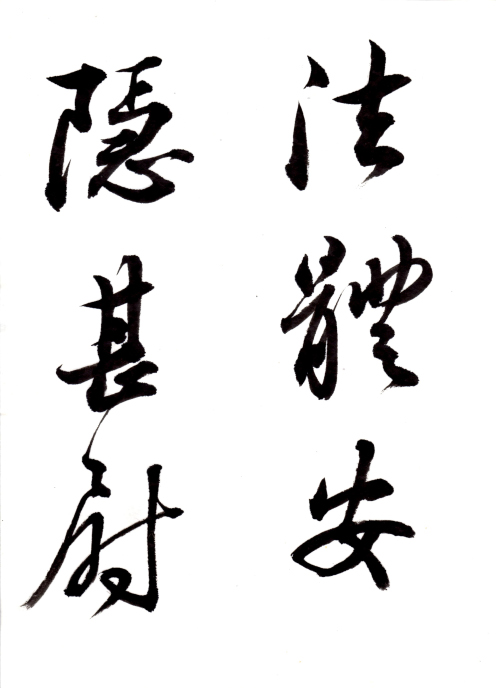 法體安
隱甚尉